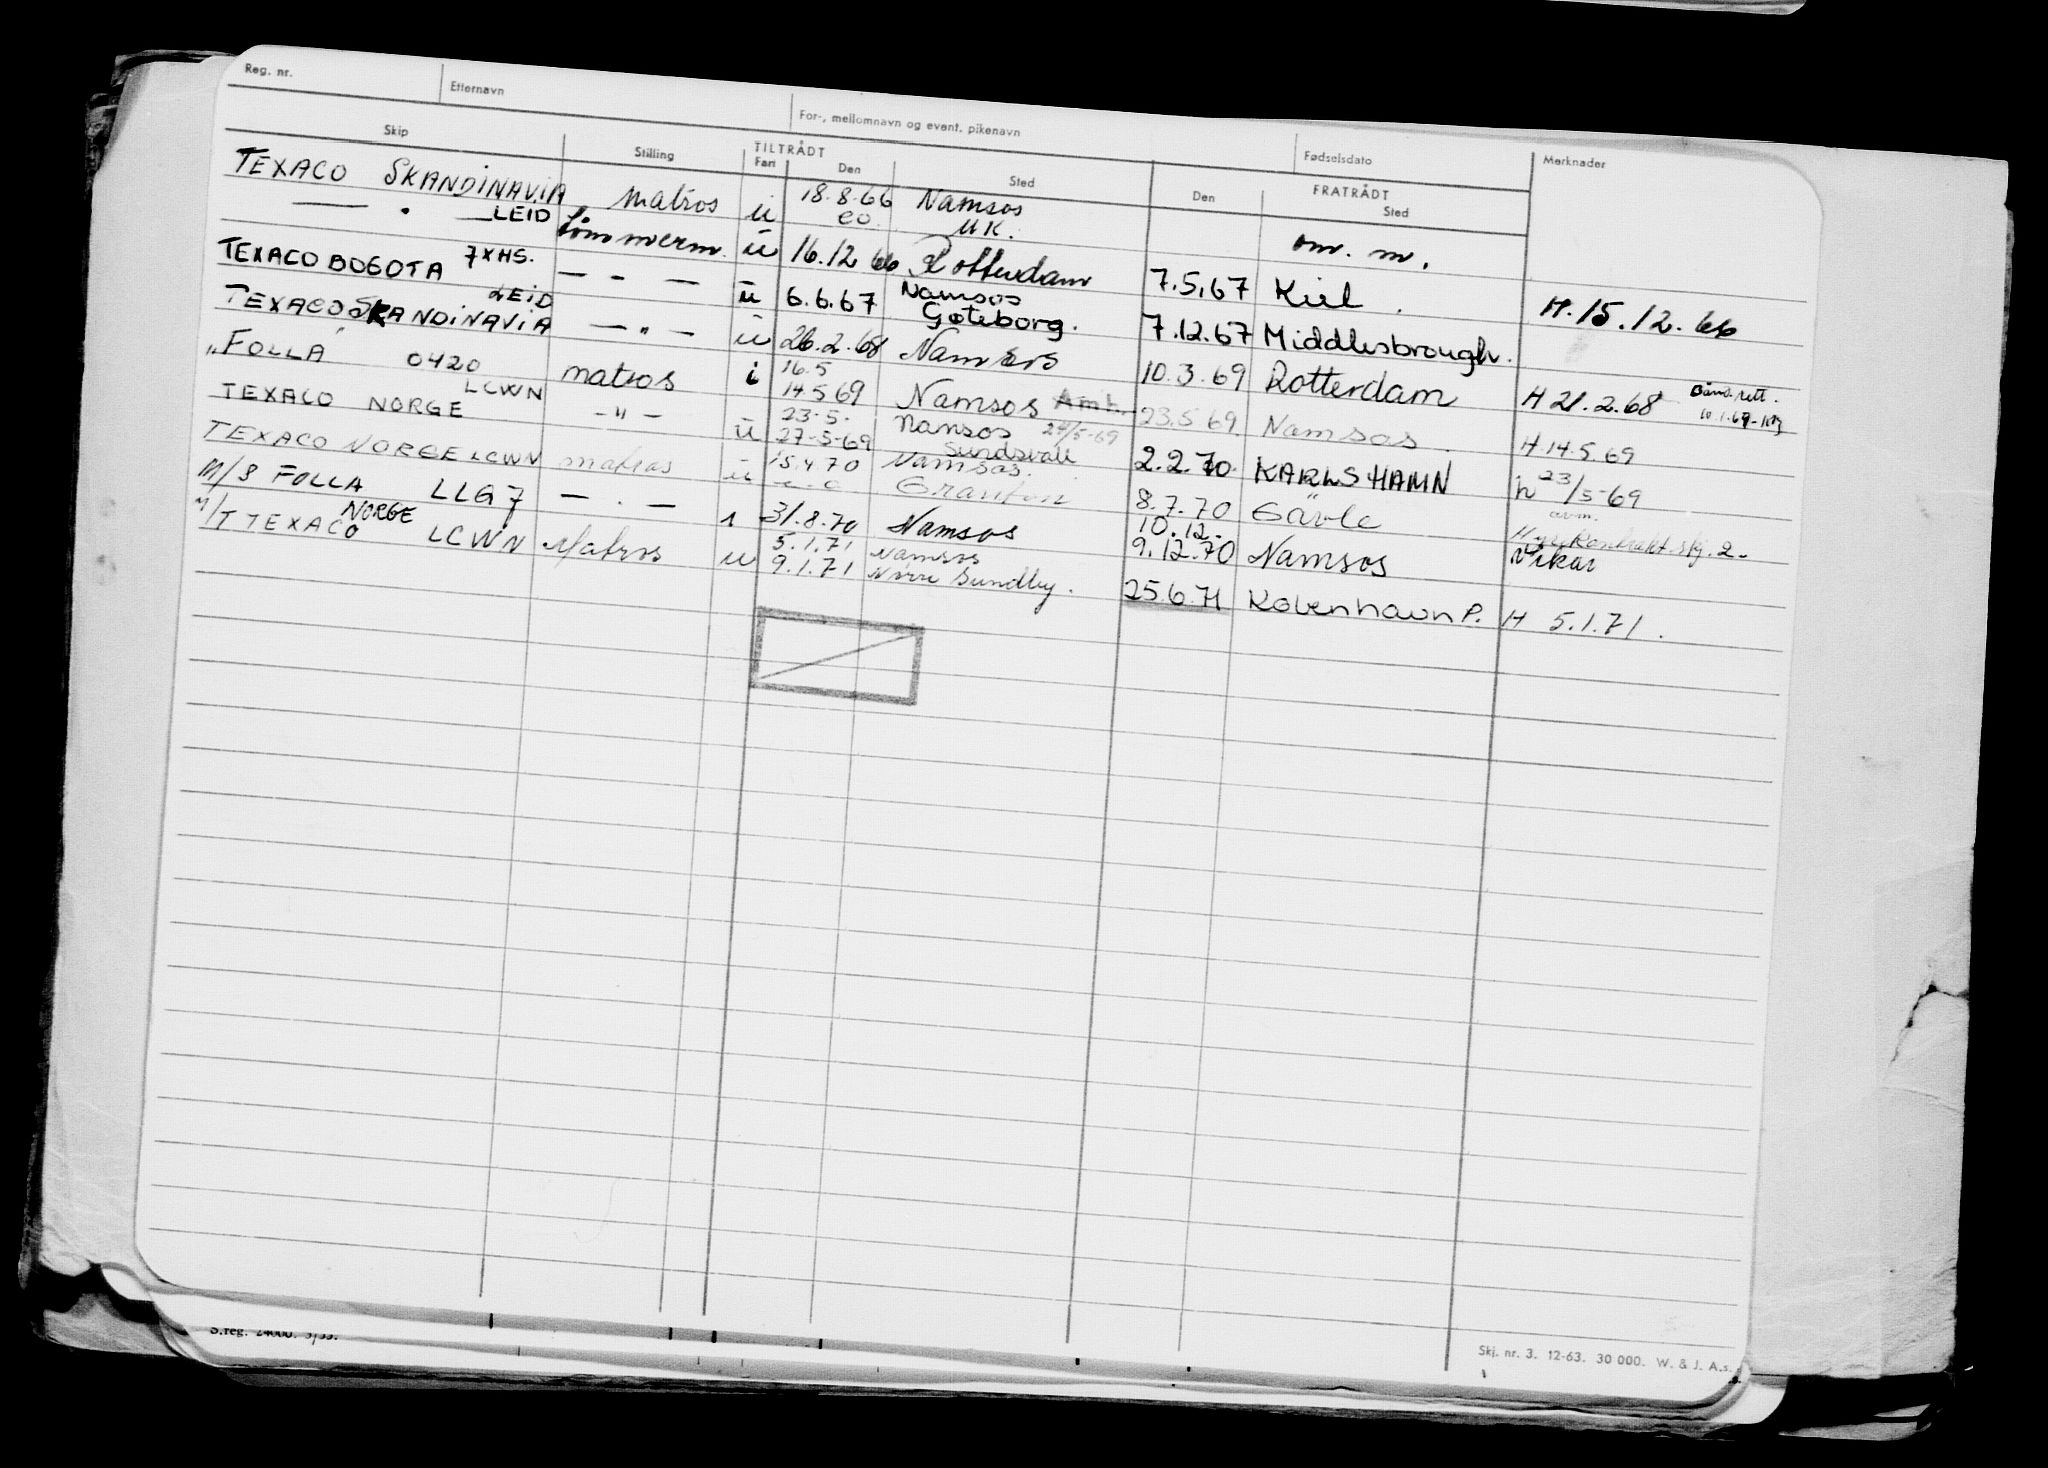 Reg. nr. Etternavn For-, mellomnavn og event. pikenavn Fødselsdato Merknader
Skip Stilling TILTRÅDT Fart Den Sted FRATRÅDT Den Sted
TEXACO SKANDINAVIA matros u 18.8.66 Namsos
eo. UK. om. m.
— " — LEID tømmerm. u 16.12 66 Rotterdam 7.5.67 Kiel. H. 15.12.66
TEXACO BOGOTA 7XHS. — " — u 6.6.67 Namsos
Gøteborg. 7.12.67 Middlesbrough.
TEXACO SKANDINAVIA LEID — " — u 26.2.68 Namsos 10.3.69 Rotterdam H 21.2.68
"FOLLA" 0420 matros i 16.5
14.5 69 Namsos 23.5 69. Namsos. H 14.5.69
TEXACO NORGE LCWN — " — u 23.5.
27-5-69 Namsos 27/5-69
Sundsvall 2.2.70. KARLSHAMN h 23/5-69
TEXACO NORGE LCWN matros u 15.4 70 Namsos.
Granton 8.7.70 Gävle
M/S FOLLA LLG7 — " — 1 31.8.70 Namsos 10.12.
9.12.70 Namsos Vikar
M/T TEXACO NORGE LCWN Matros u 5.1.71 Namsos
9.1.71 Nørre Sundby. 25.6.71 København P. H 5.1.71.
S.reg. 24000. 5/55.
Skj. nr. 3. 12-63. 30 000. W. & J. A.s.